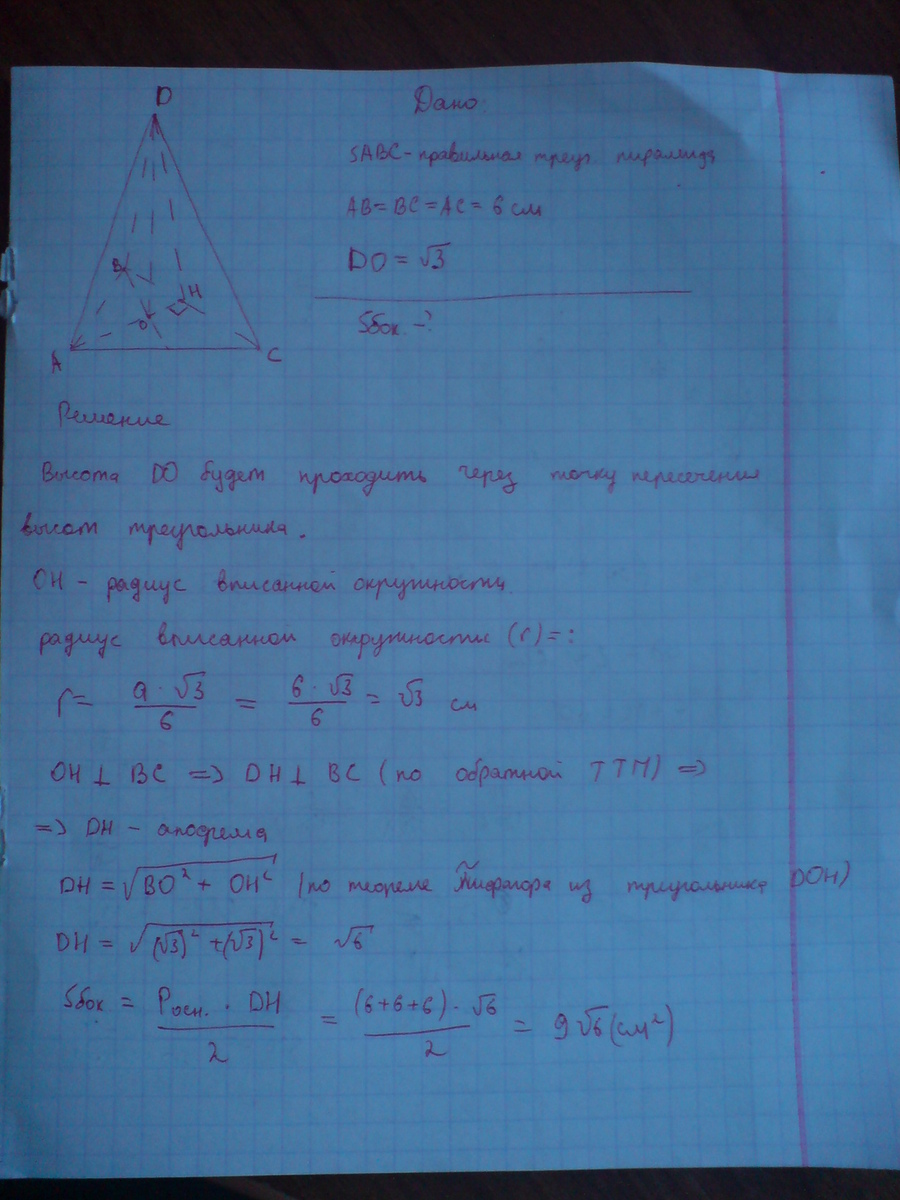 D
B
H
O
A
C
Дано
SABC - правильная треуг. пирамида
AB = BC = AC = 6 см
DO = √3
Sбок. - ?
Решение
Высота DO будет проходить через точку пересечения
высот треугольника.
OH - радиус вписанной окружности
радиус вписанной окружности (r) = :
r = a · √3 / 6 = 6 · √3 / 6 = √3 см
OH ⊥ BC => DH ⊥ BC (по обратной ТТП) =>
=> DH - апофема
DH = √(BO² + OH²) (по теореме Пифагора из треугольника DOH)
DH = √((√3)² + (√3)²) = √6
Sбок = Pосн. · DH / 2 = (6+6+6) · √6 / 2 = 9√6 (см²)